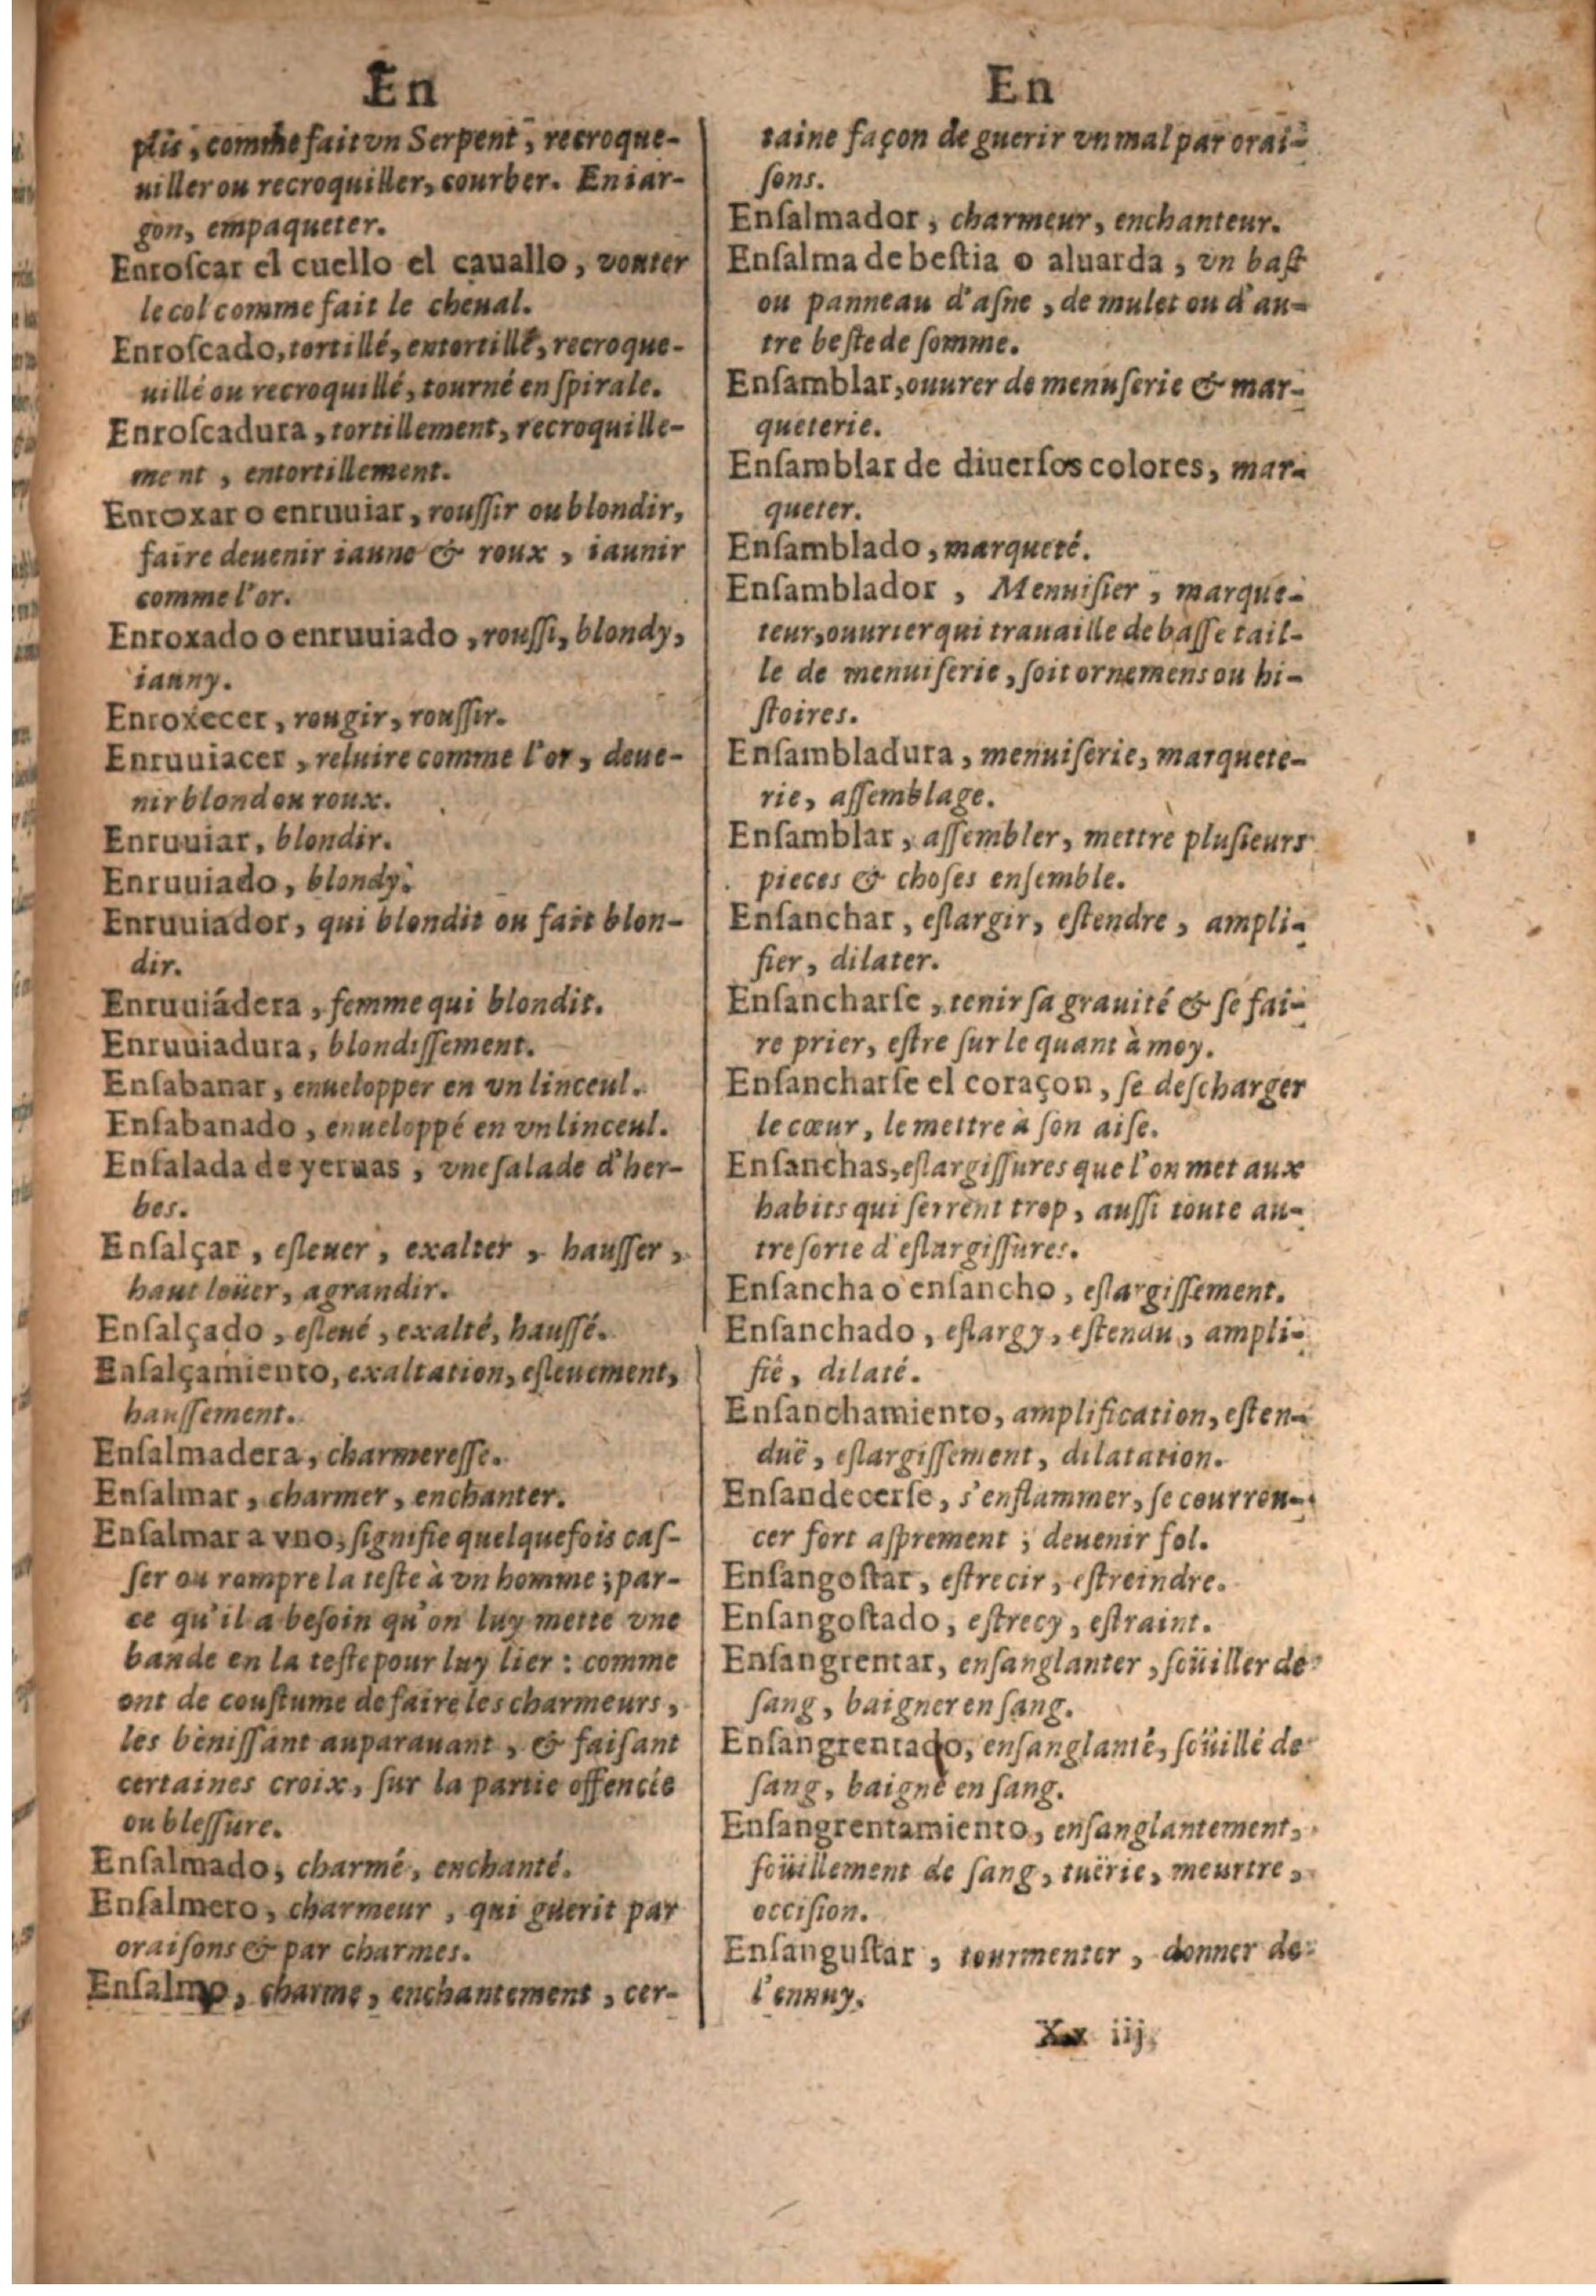 En
plis, comme fait vn Serpent, recroque-
uiller ou recroquiller, courber. En iar-
gon, empaqueter.
Enroſcar el cuello el cauallo, vouter
le col comme fait le cheual.
Enroſcado, tortillé, entortillé, recroque-
uillé ou recroquillé, tourné en ſpirale.
Enroſcadura, tortillement, recroquille-
ment, entortillement.
Enroxar o enruuiar, rouſſir ou blondir,
faire deuenir iaune & roux, iaunir
comme l'or.
Enroxado o enruuiado, rouſſi, blondy,
iauny.
Enroxecer, rougir, rouſſir.
Enruuiacer, reluire comme l'or, deue-
nir blond ou roux.
Enruuiar, blondir.
Enruuiado, blondy.
Enruuiador, qui blondit ou fait blon-
dir.
Enruuiádera, femme qui blondit.
Enruuiadura, blondiſſement.
Enſabanar, enuelopper en vn linceul.
Enſabanado, enueloppé en vn linceul.
Enſalada de yeruas, vne ſalade d'her-
bes.
Enſalçar, eſleuer, exalter, hauſſer,
haut loüer, agrandir.
Enſalçado, eſleué, exalté, hauſſé.
Enſalçamiento, exaltation, eſleuement,
hauſſement.
Enſalmadera, charmereſſe.
Enſalmar, charmer, enchanter.
Enſalmar a vno, ſignifie quelquefois caſ-
ſer ou rompre la teſte à vn homme; par-
ce qu'il a beſoin qu'on luy mette vne
bande en la teſte pour luy lier: comme
ont de couſtume de faire les charmeurs,
les beniſſant auparauant, & faiſant
certaines croix, ſur la partie offencée
ou bleſſure.
Enſalmado, charmé, enchanté.
Enſalmero, charmeur, qui guerit par
oraiſons & par charmes.
Enſalmo, charme, enchantement, cer-
En
taine façon de guerir vn mal par orai-
ſons.
Enſalmador, charmeur, enchanteur.
Enſalma de beſtia o aluarda, vn baſt
ou panneau d'aſne, de mulet ou d'au-
tre beſte de ſomme.
Enſamblar, ouurer de menuſerie & mar-
queterie.
Enſamblar de diuerſos colores, mar-
queter.
Enſamblado, marqueté.
Enſamblador, Menuiſier, marque-
teur, ouurier qui trauaille de baſſe tail-
le de menuiſerie, ſoit ornemens ou hi-
ſtoires.
Enſambladura, menuiſerie, marquete-
rie, aſſemblage.
Enſamblar, aſſembler, mettre pluſieurs
pieces & choſes enſemble.
Enſanchar, eſlargir, eſtendre, ampli-
fier, dilater.
Enſancharſe, tenir ſa grauité & ſe fai-
re prier, eſtre ſur le quant à moy.
Enſancharſe el coraçon, ſe deſcharger
le cœur, le mettre à ſon aiſe.
Enſanchas, eſlargiſſures que l'on met aux
habits qui ſerrent trop, auſſi toute au-
tre ſorte d'eſlargiſſures.
Enſancha o enſancho, eſlargiſſement.
Enſanchado, eſlargy, eſtendu, ampli-
fié, dilaté.
Enſanchamiento, amplification, eſten-
duë, eſlargiſſement, dilatation.
Enſandecerſe, s'enflammer, ſe courrou-
cer fort aſprement; deuenir fol.
Enſangoſtar, eſtrecir, eſtreindre.
Enſangoſtado, eſtrecy, eſtraint.
Enſangrentar, enſanglanter, ſoüiller de
ſang, baigner en ſang.
Enſangrentado, enſanglanté, ſoüillé de
ſang, baigné en ſang.
Enſangrentamiento, enſanglantement,
ſoüillement de ſang, tuërie, meurtre,
occiſion.
Enſanguſtar, tourmenter, donner de
l'ennuy.
Xx iij